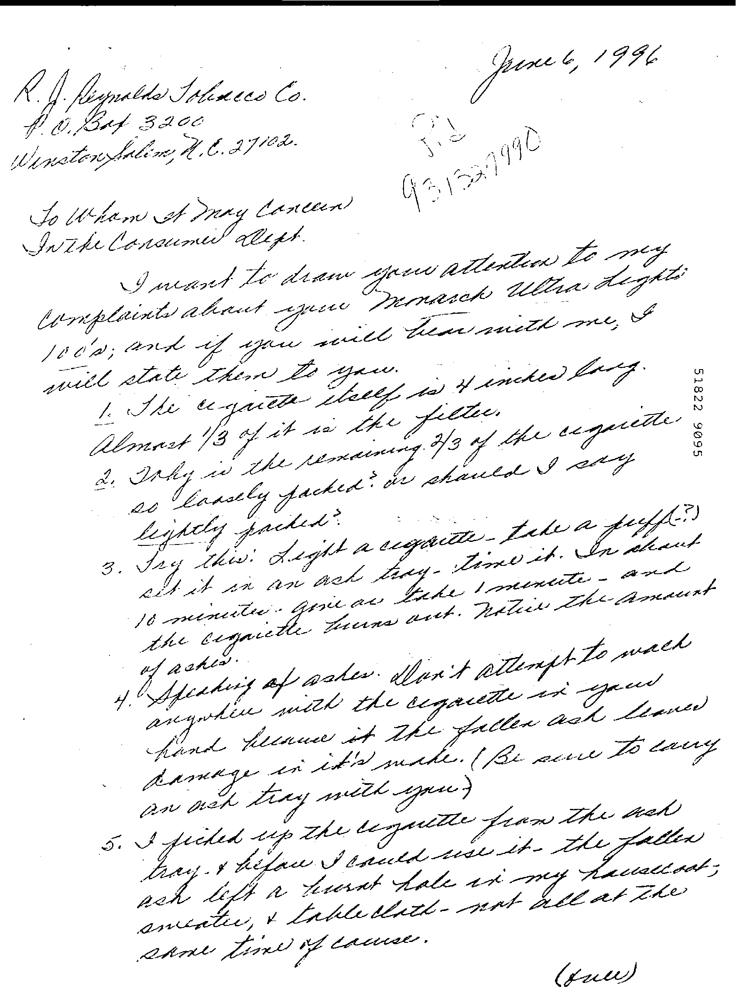 June 6, 1996
R. J. Reynolds Tobacco Co.
P.O. Box 3200
Winston Salem, N.C. 27102.
931327990
To Whom It May Concern
In the Consumer Dept.
I want to draw your attention to my
complaints about your Monarch Ultra Lights
100's; and if you will bear with me, I
will state them to you.
1. The cigarette itself is 4 inches long.
Almost 1/3 of it is the filter.
2. Why is the remaining 2/3 of the cigarette
so loosely packed? or should I say
lightly packed?
3. Try this: Light a cigarette - take a puff (?)
set it in an ash tray - time it. In about
10 minutes - give or take 1 minute - and
the cigarette burns out. Notice the amount
of ashes.
4. Speaking of ashes. Don't attempt to walk
anywhere with the cigarette in your
hand because it the fallen ash leaves
damage in it's wake. (Be sure to carry
an ash tray with you.)
5. I picked up the cigarette from the ash
tray - & before I could use it - the fallen
ash left a burnt hole in my housecoat,
sweater, & tablecloth - not all at the
same time of course.
(over)
51822 9095